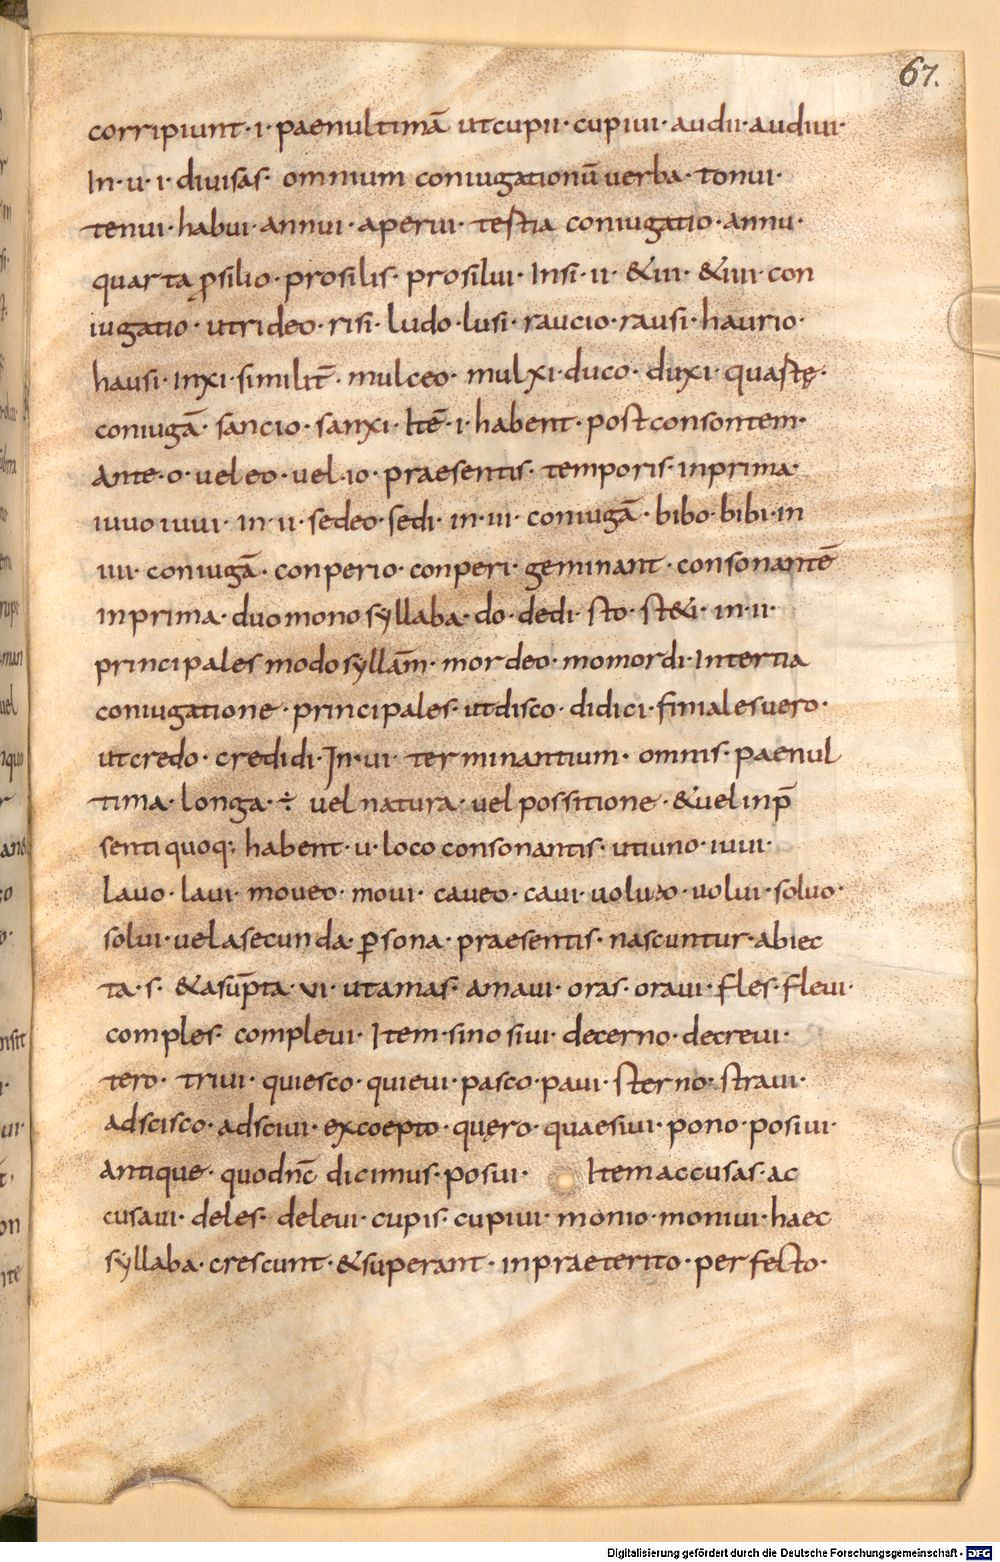 67.
corripiunt · i · paenultimā utcupii · cupiui · audii · audiui ·
In · u · i · diuisas · omnium coniugationū uerba · tonui ·
tenui · habui · annui · aperui · testia coniugatio · annu ·
quarta ꝓsilio · prosilis · prosilui · Insi · ii · &iii · &iiii · con
iugatio · utrideo · risi · ludo · lusi · raucio · rausi · haurio ·
hausi · inxi · similit̄ · mulceo · mulxi · duco · duxi · quastę ·
coniugā · sancio · sanxi · Itē · i · habent · post consontem ·
Ante · o · uel eo · uel · io · praesentis · temporis · inprima ·
iuuo iuui · in · ii · sedeo · sedi · in · iii · coniugā · bibo · bibi · in
iiii · coniugā · conperio · conperi · geminant · consonantē
inprima · duo monosyllaba · do · dedi · sto · st&i · in · ii ·
principales modo syllām · mordeo · momordi · Intertia
coniugatione · principales · utdisco · didici · finiales uero ·
utcredo · credidi · In · ui · terminantium · omnis · paenul
tima · longa · ÷ uel natura · uel possitione · &uel inp̄
senti quoq; habent · u · loco consonantis · utiuno · iuui ·
lauo · laui · moueo · moui · caueo · caui · uoluo · uolui · soluo ·
solui · uel asecunda · ꝑsona · praesentis · nascuntur · abiec
ta · s · &asūpta · ui · utamas · amaui · oras · oraui · fles · fleui ·
comples · compleui · Item · sino siui · decerno · decreui ·
tero · triui · quiesco · quieui · pasco · paui · sterno · straui ·
adscisco · adsciui · excoepto · quęro · quaesiui · pono · posiui ·
antique · quodnc̄ dicimus · posui · Item accusas · ac
cusaui · deles · deleui · cupis · cupiui · monio · moniui · haec
syllaba · crescunt · &superant · inpraeterito · perfecto ·
Digitalisierung gefördert durch die Deutsche Forschungsgemeinschaft - DFG